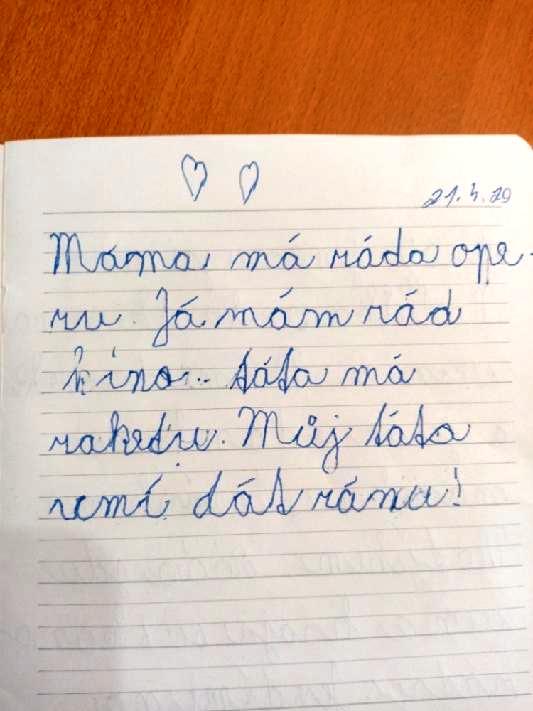 21.4.20
Máma má ráda ope-
ru. Já mám rád
kino.. táta má
raketu. Můj táta
umí dát ránu!